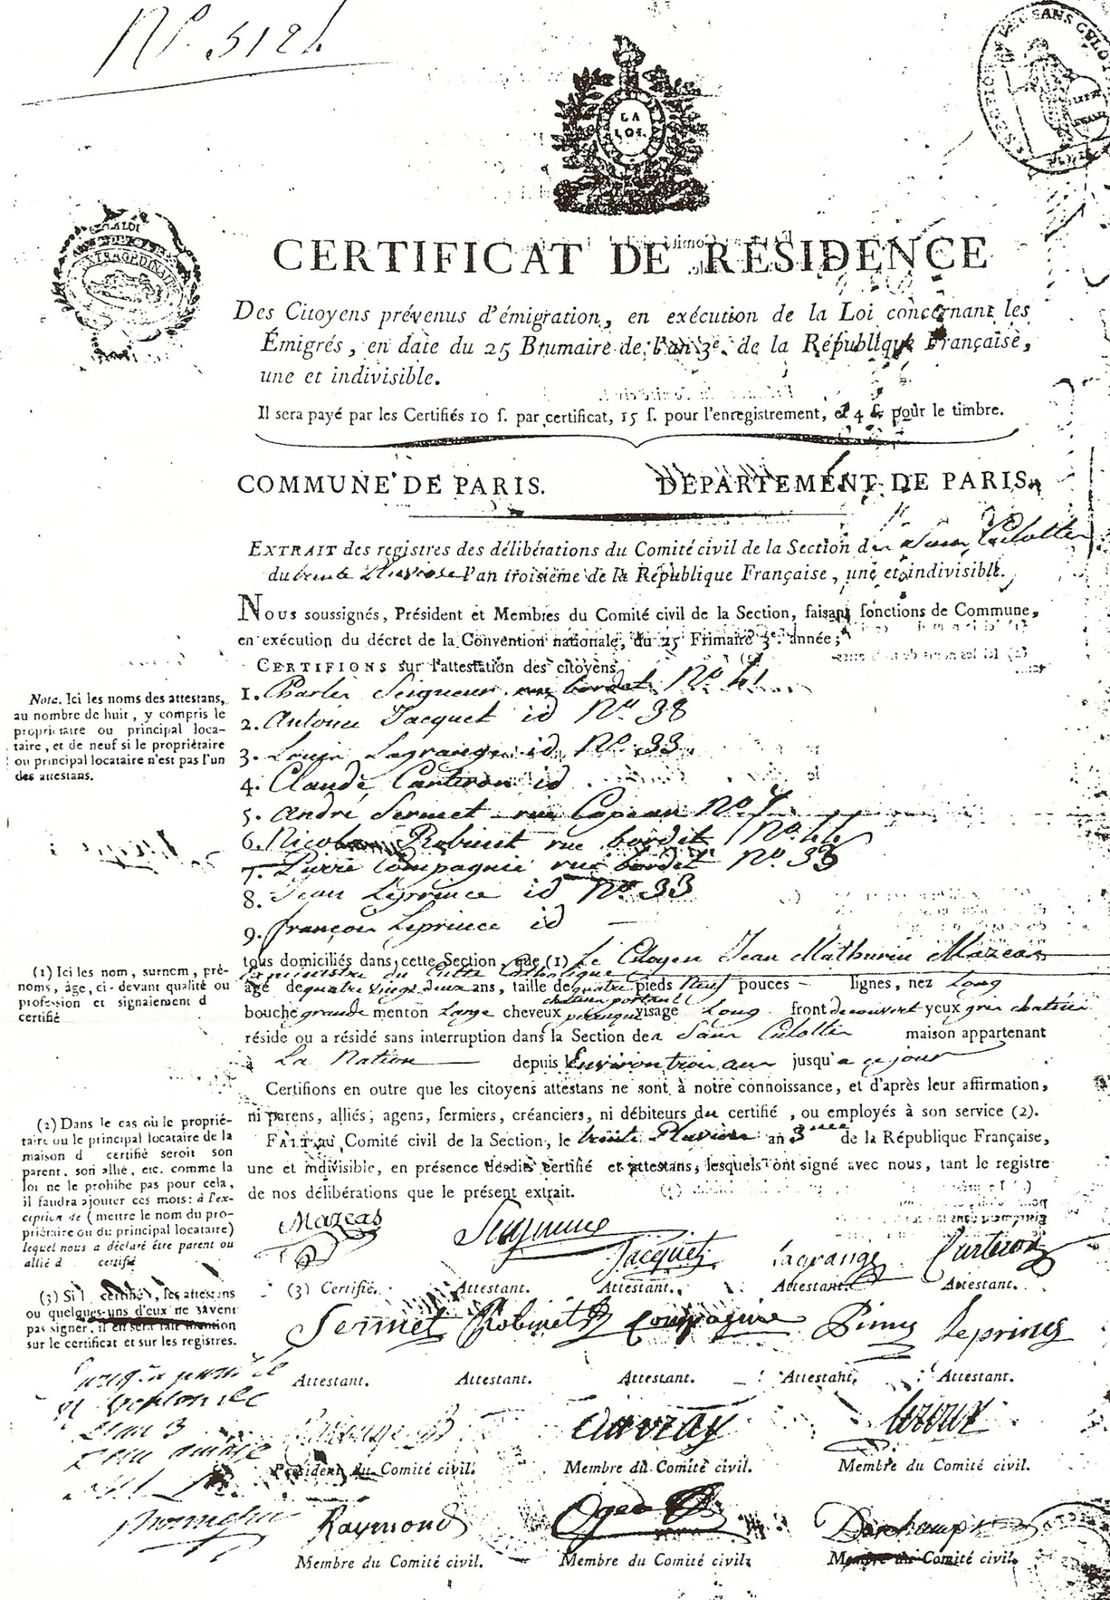 Nº. 5121.
SECTION DES SANS CULOT
LA
LOI.
LA LOI
EXTRAORDINAIRE
CERTIFICAT DE RESIDENCE
Des Citoyens prévenus d'émigration, en exécution de la Loi concernant les
Émigrés, en date du 25 Brumaire de l'an 3e. de la République Française,
une et indivisible.
Il sera payé par les Certifiés 10 ſ. par certificat, 15 ſ. pour l'enregistrement, et 4 ſ. pour le timbre.
COMMUNE DE PARIS. DÉPARTEMENT DE PARIS.
EXTRAIT des registres des délibérations du Comité civil de la Section des Sans Culottes
du trente Pluviose l'an troisième de la République Française, une et indivisible.
Nous soussignés, Président et Membres du Comité civil de la Section, faisant fonctions de Commune,
en exécution du décret de la Convention nationale, du 25 Frimaire 3e. année;
CERTIFIONS sur l'attestation des citoyens
1. Charles Seigneur rue bordet Nº 41
2. Antoine Jacquet id Nº 38
3. Louis Lagrange id Nº 33
4. Claude Carteron id
5. André Sermet rue Copeau Nº 7
6. Nicolas Robinet rue bordet Nº 44
7. Pierre Compagnie rue bordet Nº 33
8. Jean Leprince id Nº 33
9. françois Leprince id
Note. Ici les noms des attestans,
au nombre de huit, y compris le
propriétaire ou principal loca-
taire, et de neuf si le propriétaire
ou principal locataire n'est pas l'un
des attestans.
tous domiciliés dans cette Section, que (1) Le Citoyen Jean Mathurin Mazeas
ministre du Culte Catholique
âgé de quatre vingt deux ans, taille de quatre pieds neuf pouces — lignes, nez Long
chatain portant
bouche grande menton Large cheveux perruque visage Long front decouvert yeux gris chatain
réside ou a résidé sans interruption dans la Section des Sans Culottes maison appartenant
à La Nation depuis Environ trois ans jusqu'a ce jour
(1) Ici les nom, surnom, pré-
noms, âge, ci-devant qualité ou
profession et signalement d
certifié
Certifions en outre que les citoyens attestans ne sont à notre connoissance, et d'après leur affirmation,
ni parens, alliés, agens, fermiers, créanciers, ni débiteurs du certifié, ou employés à son service (2).
FAIT au Comité civil de la Section, le trente Pluviose an 3eme de la République Française,
une et indivisible, en présence desdits certifié et attestans, lesquels ont signé avec nous, tant le registre
de nos délibérations que le présent extrait.
(2) Dans le cas où le proprié-
taire ou le principal locataire de la
maison d certifié seroit son
parent, son allié, etc. comme la
loi ne le prohibe pas pour cela,
il faudra ajouter ces mots: à l'ex-
ception de (mettre le nom du pro-
priétaire ou du principal locataire)
lequel nous a déclaré être parent ou
allié d certifié
(3) Si l certifié, les attestans
ou quelques-uns d'eux ne savent
pas signer, il en sera fait mention
sur le certificat et sur les registres.
Mazeas Seigneur Jacquet Lagrange Carteron
(3) Certifié. Attestant. Attestant. Attestant. Attestant.
Sermet Robinet Compagnie Leprince
Attestant. Attestant. Attestant. Attestant. Attestant.
Davray Leroux
Président du Comité civil. Membre du Comité civil. Membre du Comité civil.
Raymond Oger Deschamps
Membre du Comité civil. Membre du Comité civil. Membre du Comité civil.